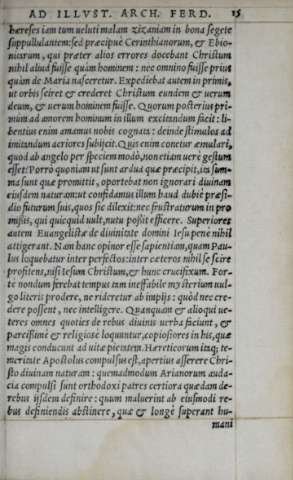 AD ILLVST. ARCH. FERD. 15
hæreses iam tum ueluti malam zizaniam in bona segete
suppullulantem: sed præcipuè Cerinthianorum, & Ebio-
nitarum, qui præter alios errores docebant Christum
nihil aliud fuisse quàm hominem: nec omnino fuisse prius
quàm de Maria nasceretur. Expediebat autem in primis,
ut orbis sciret & crederet Christum eundem & uerum
deum, & uerum hominem fuisse. Quorum posterius pri-
mum ad amorem hominum in illum excitandum facit: li-
bentius enim amamus nobis cognata: deinde stimulos ad
imitandum acriores subijcit. Quis enim conetur æmulari,
quod ab angelo per speciem modò, non etiam uerè gestum
esset? Porrò quoniam ut sunt ardua quæ præcipit, ita sum-
ma sunt quæ promittit, oportebat non ignorari diuinam
eiusdem naturam: ut confidamus illum haud dubiè præsi-
dio futurum suis, quos sic dilexit: nec frustraturum in pro
missis, qui quicquid uult, nutu possit efficere. Superiores
autem Euangelistæ de diuinitate domini Iesu penè nihil
attigerant. Nam hanc opinor esse sapientiam, quam Pau-
lus loquebatur inter perfectos: inter cæteros nihil se scire
profitens, nisi Iesum Christum, & hunc crucifixum. For-
tè nondum ferebat tempus tam ineffabile mysterium uul-
go literis prodere, ne rideretur ab impijs: quòd nec cre-
dere possent, nec intelligere. Quanquam & alioqui ue-
teres omnes quoties de rebus diuinis uerba faciunt, &
parcissimè & religiosè loquuntur, copiosiores in his, quæ
magis conducunt ad uitæ pietatem. Hæreticorum itaq; te-
meritate Apostolus compulsus est, apertius asserere Chri-
sto diuinam naturam: quemadmodum Arianorum auda-
cia compulsi sunt orthodoxi patres certiora quædam de
rebus ijsdem definire: quum maluerint ab eiusmodi re-
bus definiendis abstinere, quæ & longè superant hu-
mani